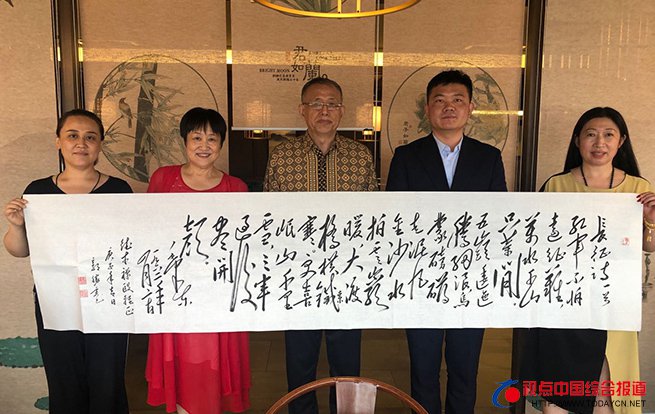 BRIGHT MOON
君如蘭
长征诗一首
红军不怕
远征难
万水千山
只等闲
五岭逶迤
腾细浪乌
蒙磅礴
走泥丸
金沙水
拍云崖
暖大渡
桥横铁索
寒更喜
岷山千里
雪三军
过后
尽开
颜
毛泽东
庚子年
视点中国综合报道
HTTP://WWW.TODAYCN.NET